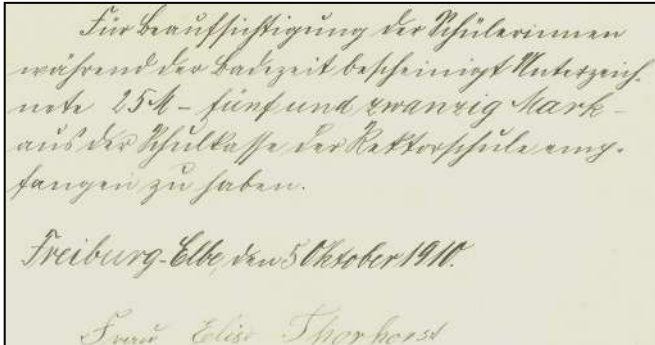 Für Beaufsichtigung der Schülerinnen
während der Badezeit bescheinigt Unterzeich-
nete 25 M – fünf und zwanzig Mark –
aus der Schulkasse der Rektorschule emp-
fangen zu haben.
Freiburg-Elbe, den 5 Oktober 1910.
Frau Elise Thorhorst